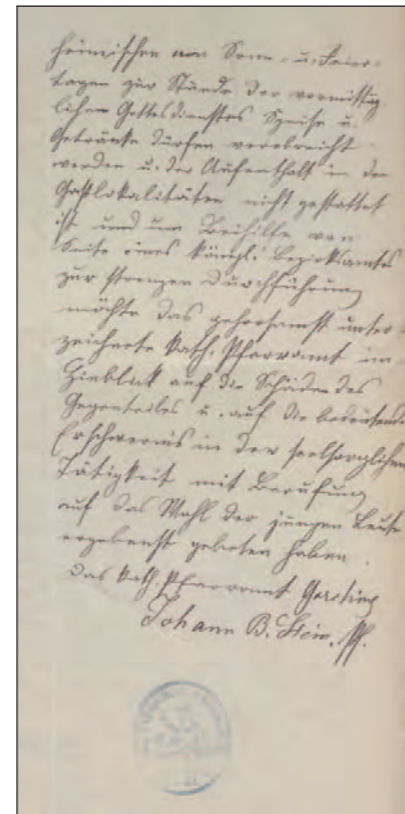 heimischen an Sonn- u. Feier-
tagen zur Stunde des vormittäg-
lichen Gottesdienstes Speise u.
Getränke dürfen verabreicht
werden u. der Aufenthalt in den
Gastlokalitäten nicht gestattet
ist und um Beihilfe von
Seite eines königl. Bezirksamtes
zur strengen Durchführung
möchte das gehorsamst unter-
zeichnete kath. Pfarramt im
Hinblick auf die Schäden des
Gegenteiles u. auf die bedeutende
Erschwernis in der seelsorglichen
Tätigkeit mit Berufung
auf das Wohl der jungen Leute
ergebenst gebeten haben.
Das kath. Pfarramt
Johann B. Stein, Pf.